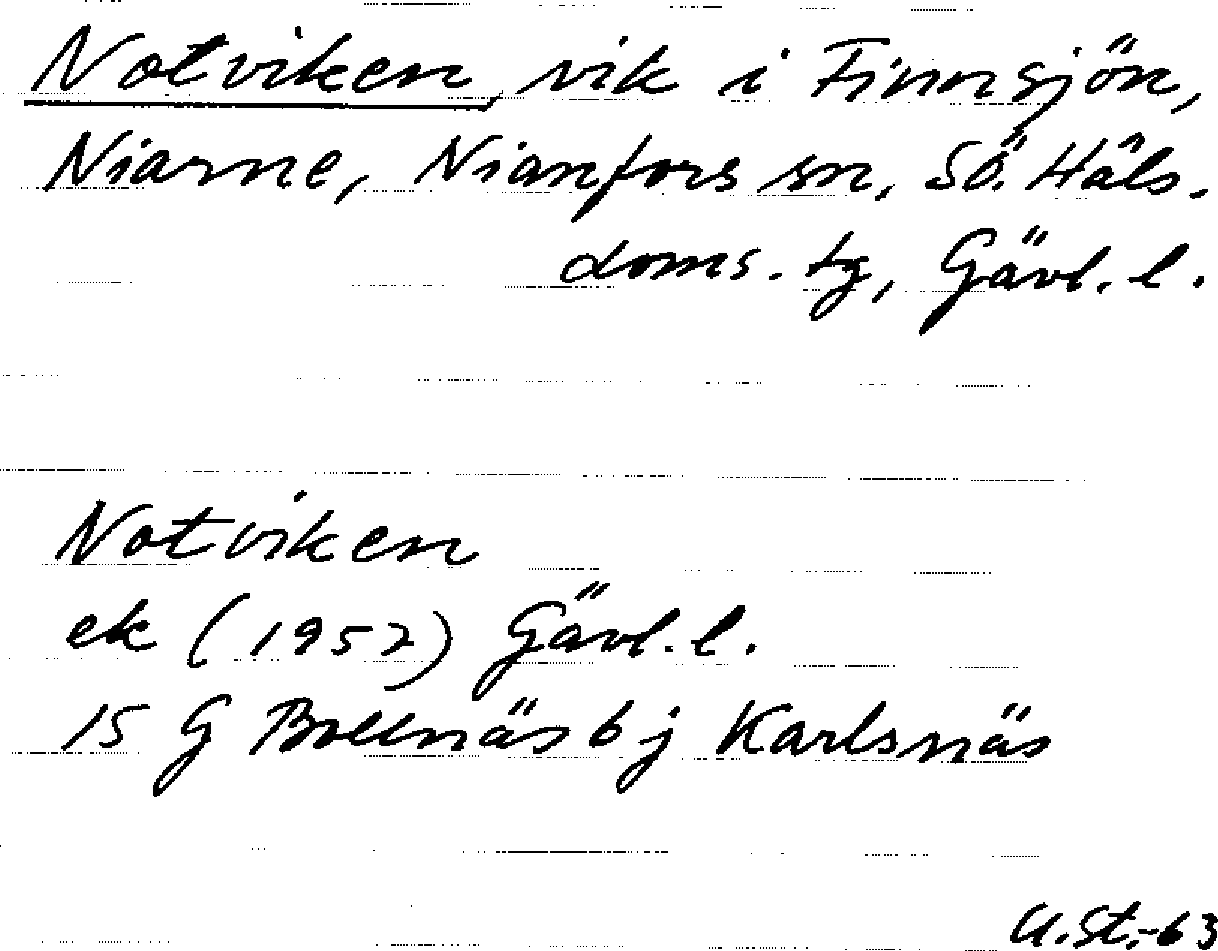 Notviken, vik i Finnsjön,
Niarne, Nianfors sn, Sö. Häls.
doms. tg, Gävl. l.
Notviken
ek (1952) Gävl. l.
15 G Bollnäs 6 j Karlsnäs
U.St.-63